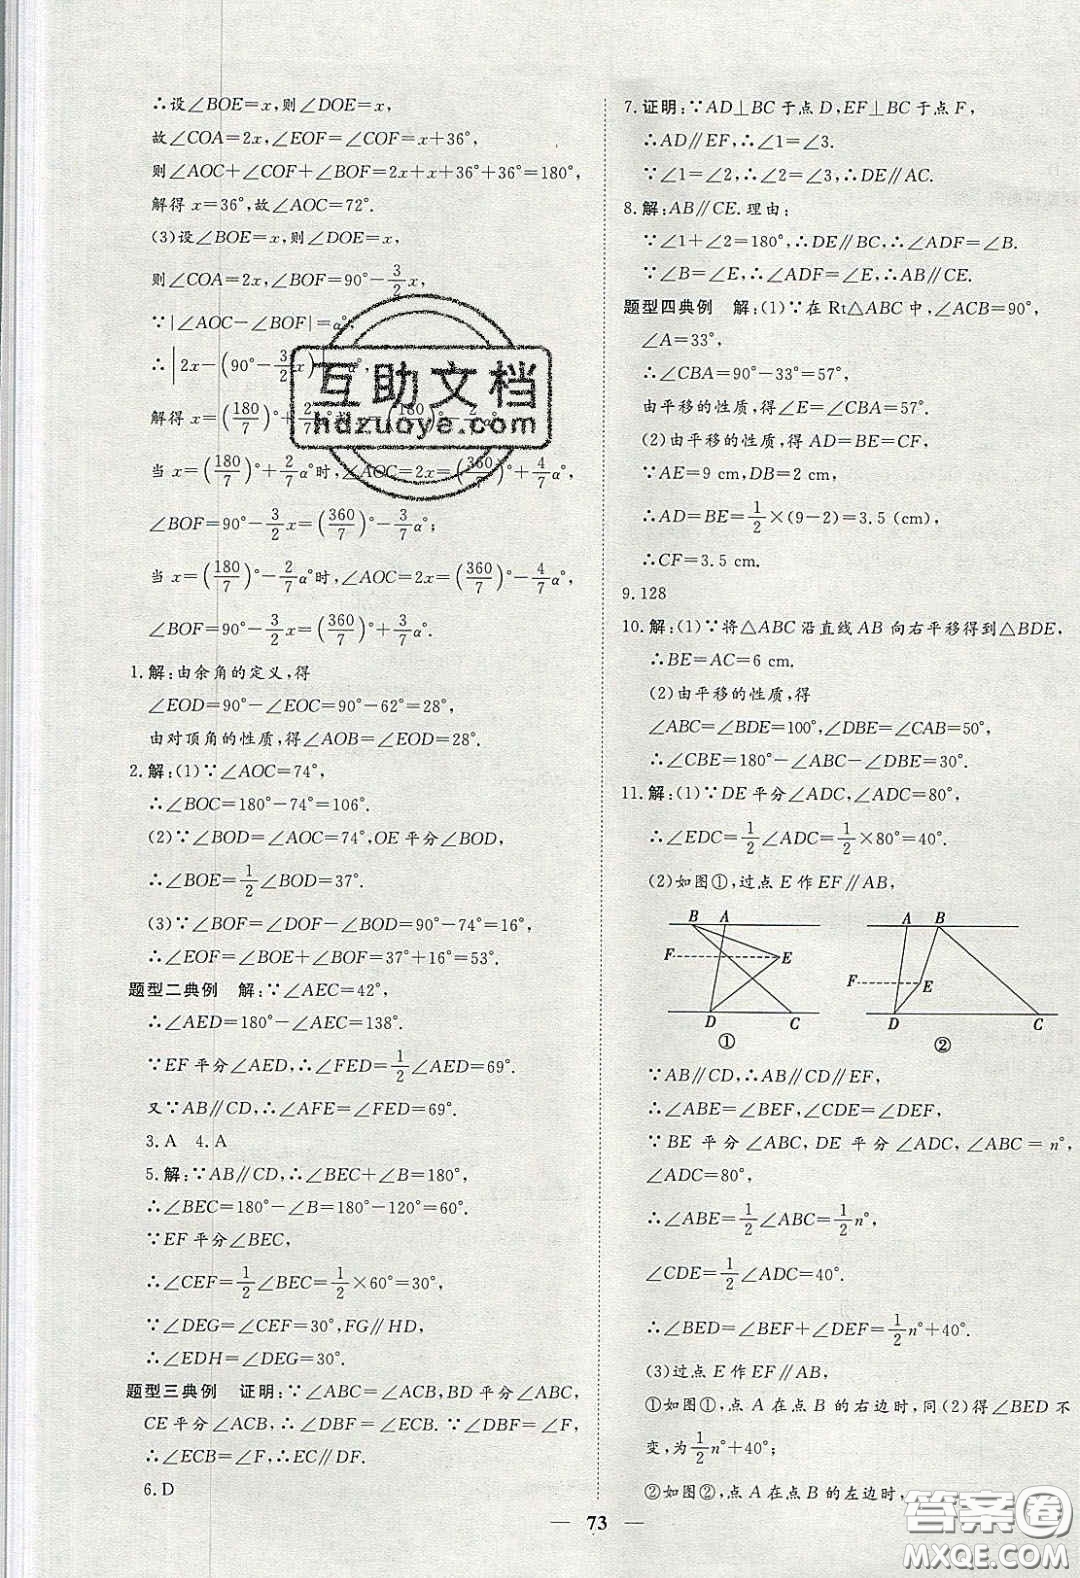 ∴设∠BOE=x,则∠DOE=x,
故∠COA=2x,∠EOF=∠COF=x+36°,
则∠AOC+∠COF+∠BOF=2x+x+36°+36°=180°,
解得 x=36°,故∠AOC=72°.
(3)设∠BOE=x,则∠DOE=x,
则∠COA=2x,∠BOF=90°-3/2x,
∵|∠AOC-∠BOF|=α°,
∴|2x-(90°-3/2x)|=α°,
解得 x=(180/7)°+2/7 =(180/7)°-2/7α°
当 x=(180/7)°+2/7α°时,∠AOC=2x=(360/7)°+4/7α°,
∠BOF=90°-3/2x=(360/7)°-3/7α°;
当 x=(180/7)°-2/7α°时,∠AOC=2x=(360/7)°-4/7α°,
∠BOF=90°-3/2x=(360/7)°+3/7α°.
1.解:由余角的定义,得
∠EOD=90°-∠EOC=90°-62°=28°,
由对顶角的性质,得∠AOB=∠EOD=28°.
2.解:(1)∵∠AOC=74°,
∴∠BOC=180°-74°=106°.
(2)∵∠BOD=∠AOC=74°,OE平分∠BOD,
∴∠BOE=1/2∠BOD=37°.
(3)∵∠BOF=∠DOF-∠BOD=90°-74°=16°,
∴∠EOF=∠BOE+∠BOF=37°+16°=53°.
题型二典例 解:∵∠AEC=42°,
∴∠AED=180°-∠AEC=138°.
∵EF平分∠AED,∴∠FED=1/2∠AED=69°.
又∵AB∥CD,∴∠AFE=∠FED=69°.
3.A 4.A
5.解:∵AB∥CD,∴∠BEC+∠B=180°.
∴∠BEC=180°-∠B=180°-120°=60°.
∵EF平分∠BEC,
∴∠CEF=1/2∠BEC=1/2×60°=30°,
∵∠DEG=∠CEF=30°,FG∥HD,
∴∠EDH=∠DEG=30°.
题型三典例 证明:∵∠ABC=∠ACB,BD平分∠ABC,
CE平分∠ACB,∴∠DBF=∠ECB.∵∠DBF=∠F,
∴∠ECB=∠F,∴EC∥DF.
6.D
7.证明:∵AD⊥BC于点D,EF⊥BC于点F,
∴AD∥EF,∴∠1=∠3.
∵∠1=∠2,∴∠2=∠3,∴DE∥AC.
8.解:AB∥CE.理由:
∵∠1+∠2=180°,∴DE∥BC,∴∠ADF=∠B.
∵∠B=∠E,∴∠ADF=∠E,∴AB∥CE.
题型四典例 解:(1)∵在Rt△ABC中,∠ACB=90°,
∠A=33°,
∴∠CBA=90°-33°=57°.
由平移的性质,得∠E=∠CBA=57°.
(2)由平移的性质,得AD=BE=CF,
∵AE=9 cm,DB=2 cm,
∴AD=BE=1/2×(9-2)=3.5 (cm),
∴CF=3.5 cm.
9.128
10.解:(1)∵将△ABC沿直线AB向右平移得到△BDE,
∴BE=AC=6 cm.
(2)由平移的性质,得
∠ABC=∠BDE=100°,∠DBE=∠CAB=50°,
∴∠CBE=180°-∠ABC-∠DBE=30°.
11.解:(1)∵DE平分∠ADC,∠ADC=80°,
∴∠EDC=1/2∠ADC=1/2×80°=40°.
(2)如图①,过点E作EF∥AB,
B A F E D C ①
A B F E D C ②
∵AB∥CD,∴AB∥CD∥EF,
∴∠ABE=∠BEF,∠CDE=∠DEF,
∵BE平分∠ABC,DE平分∠ADC,∠ABC=n°,
∠ADC=80°,
∴∠ABE=1/2∠ABC=1/2n°,
∠CDE=1/2∠ADC=40°.
∴∠BED=∠BEF+∠DEF=1/2n°+40°.
(3)过点E作EF∥AB,
①如图①,点A在点B的右边时,同(2)得∠BED不
变,为1/2n°+40°;
②如图②,点A在点B的左边时,
73
互助文档
hdzuoye.com
答案圈
MXQE.COM